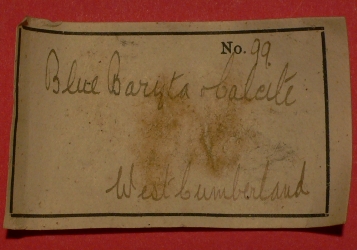 No. 99.
Blue Baryta & Calcite
West Cumberland